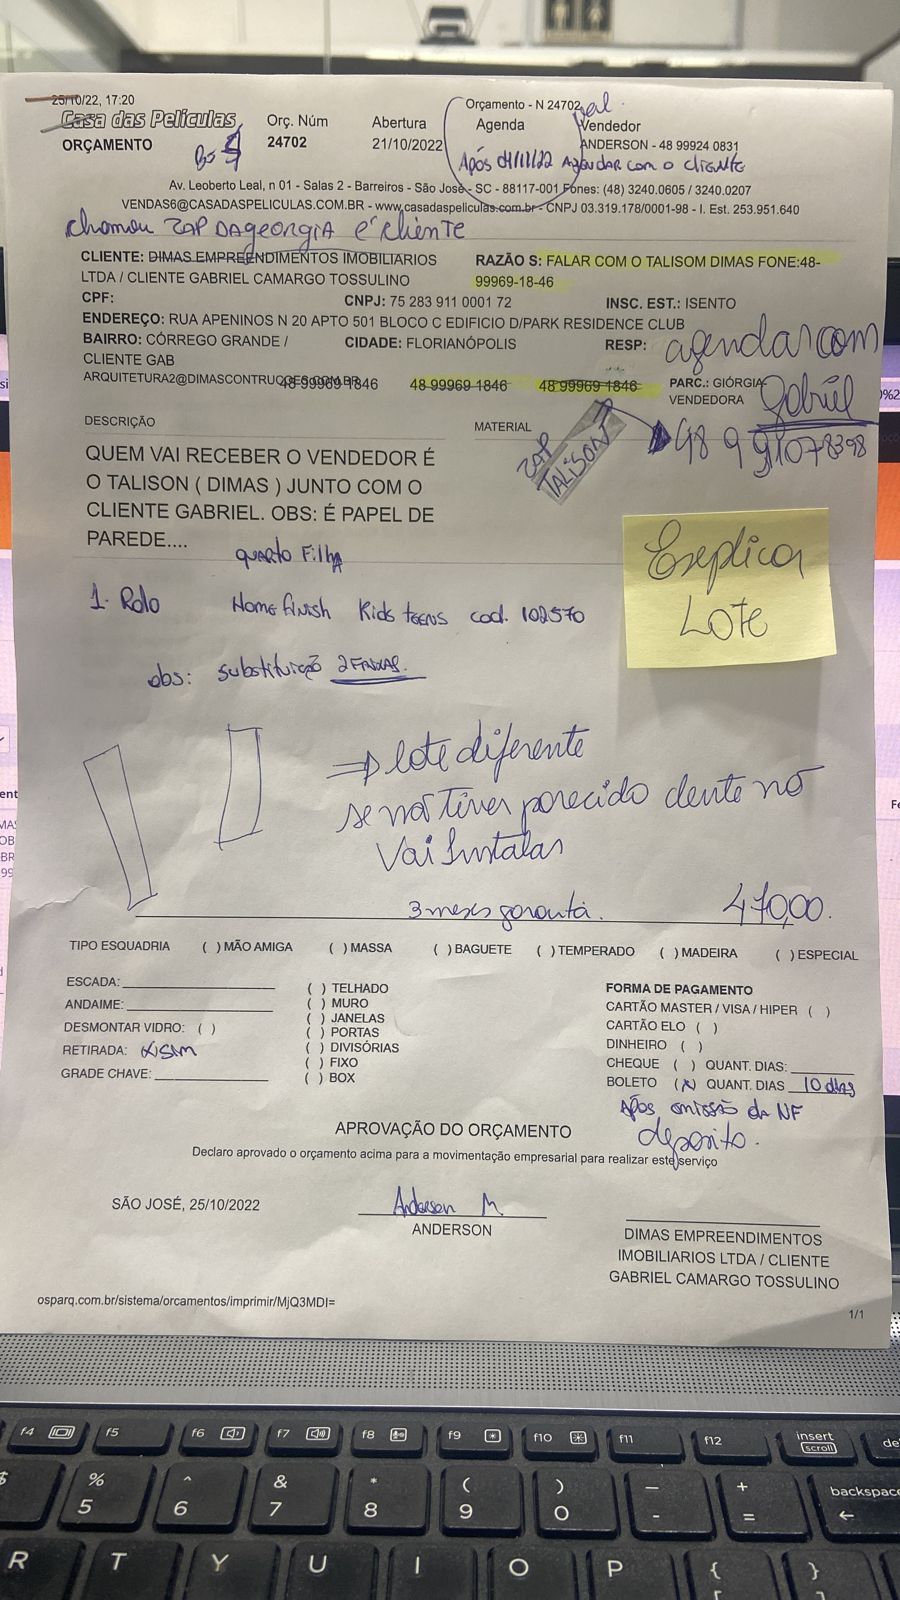 25/10/22, 17:20
Orçamento - N 24702
Casa das Películas
Orç. Núm
Abertura
Agenda
Vendedor
ORÇAMENTO
24702
21/10/2022
Após 01/11/22 Agendar com o cliente
ANDERSON - 48 99924 0831
Av. Leoberto Leal, n 01 - Salas 2 - Barreiros - São José - SC - 88117-001 Fones: (48) 3240.0605 / 3240.0207
VENDAS6@CASADASPELICULAS.COM.BR - www.casadaspeliculas.com.br - CNPJ 03.319.178/0001-98 - I. Est. 253.951.640
chamou ZAP DA georgia é cliente
CLIENTE: DIMAS EMPREENDIMENTOS IMOBILIARIOS
LTDA / CLIENTE GABRIEL CAMARGO TOSSULINO
RAZÃO S: FALAR COM O TALISOM DIMAS FONE:48-
99969-18-46
CPF:
CNPJ: 75 283 911 0001 72
INSC. EST.: ISENTO
ENDEREÇO: RUA APENINOS N 20 APTO 501 BLOCO C EDIFICIO D/PARK RESIDENCE CLUB
BAIRRO: CÓRREGO GRANDE /
CLIENTE GAB
CIDADE: FLORIANÓPOLIS
RESP:
agendar com
Gabriel
ARQUITETURA2@DIMASCONTRUCOES.COM.BR
48 99969 1846
48 99969 1846
48 99969 1846
PARC.: GIÓRGIA
VENDEDORA
48 9 91078398
DESCRIÇÃO
MATERIAL
ZAP
TALISON
QUEM VAI RECEBER O VENDEDOR É
O TALISON ( DIMAS ) JUNTO COM O
CLIENTE GABRIEL. OBS: É PAPEL DE
PAREDE....
quarto Filha
Explicar
Lote
1. Rolo Home finish Kids teens cod. 102570
obs: substituição 2 FAIXAS.
⇒ lote diferente
se não tiver parecido dente não
vai Instalar
3 meses garantia. 470,00.
TIPO ESQUADRIA ( ) MÃO AMIGA ( ) MASSA ( ) BAGUETE ( ) TEMPERADO ( ) MADEIRA ( ) ESPECIAL
ESCADA:
ANDAIME:
DESMONTAR VIDRO: ( )
RETIRADA: (x) SIM
GRADE CHAVE:
( ) TELHADO
( ) MURO
( ) JANELAS
( ) PORTAS
( ) DIVISÓRIAS
( ) FIXO
( ) BOX
FORMA DE PAGAMENTO
CARTÃO MASTER / VISA / HIPER ( )
CARTÃO ELO ( )
DINHEIRO ( )
CHEQUE ( ) QUANT. DIAS:
BOLETO (x) QUANT. DIAS 10 dias
Após emissão da NF
deposito.
APROVAÇÃO DO ORÇAMENTO
Declaro aprovado o orçamento acima para a movimentação empresarial para realizar este serviço
SÃO JOSÉ, 25/10/2022
Anderson M.
ANDERSON
DIMAS EMPREENDIMENTOS
IMOBILIARIOS LTDA / CLIENTE
GABRIEL CAMARGO TOSSULINO
osparq.com.br/sistema/orcamentos/imprimir/MjQ3MDI=
1/1
f4 f5 f6 f7 f8 f9 f10 f11 f12 insert
scroll
% 5 ^ 6 & 7 * 8 ( 9 ) 0 _ - + = backspace
R T Y U I O P { [ } ]